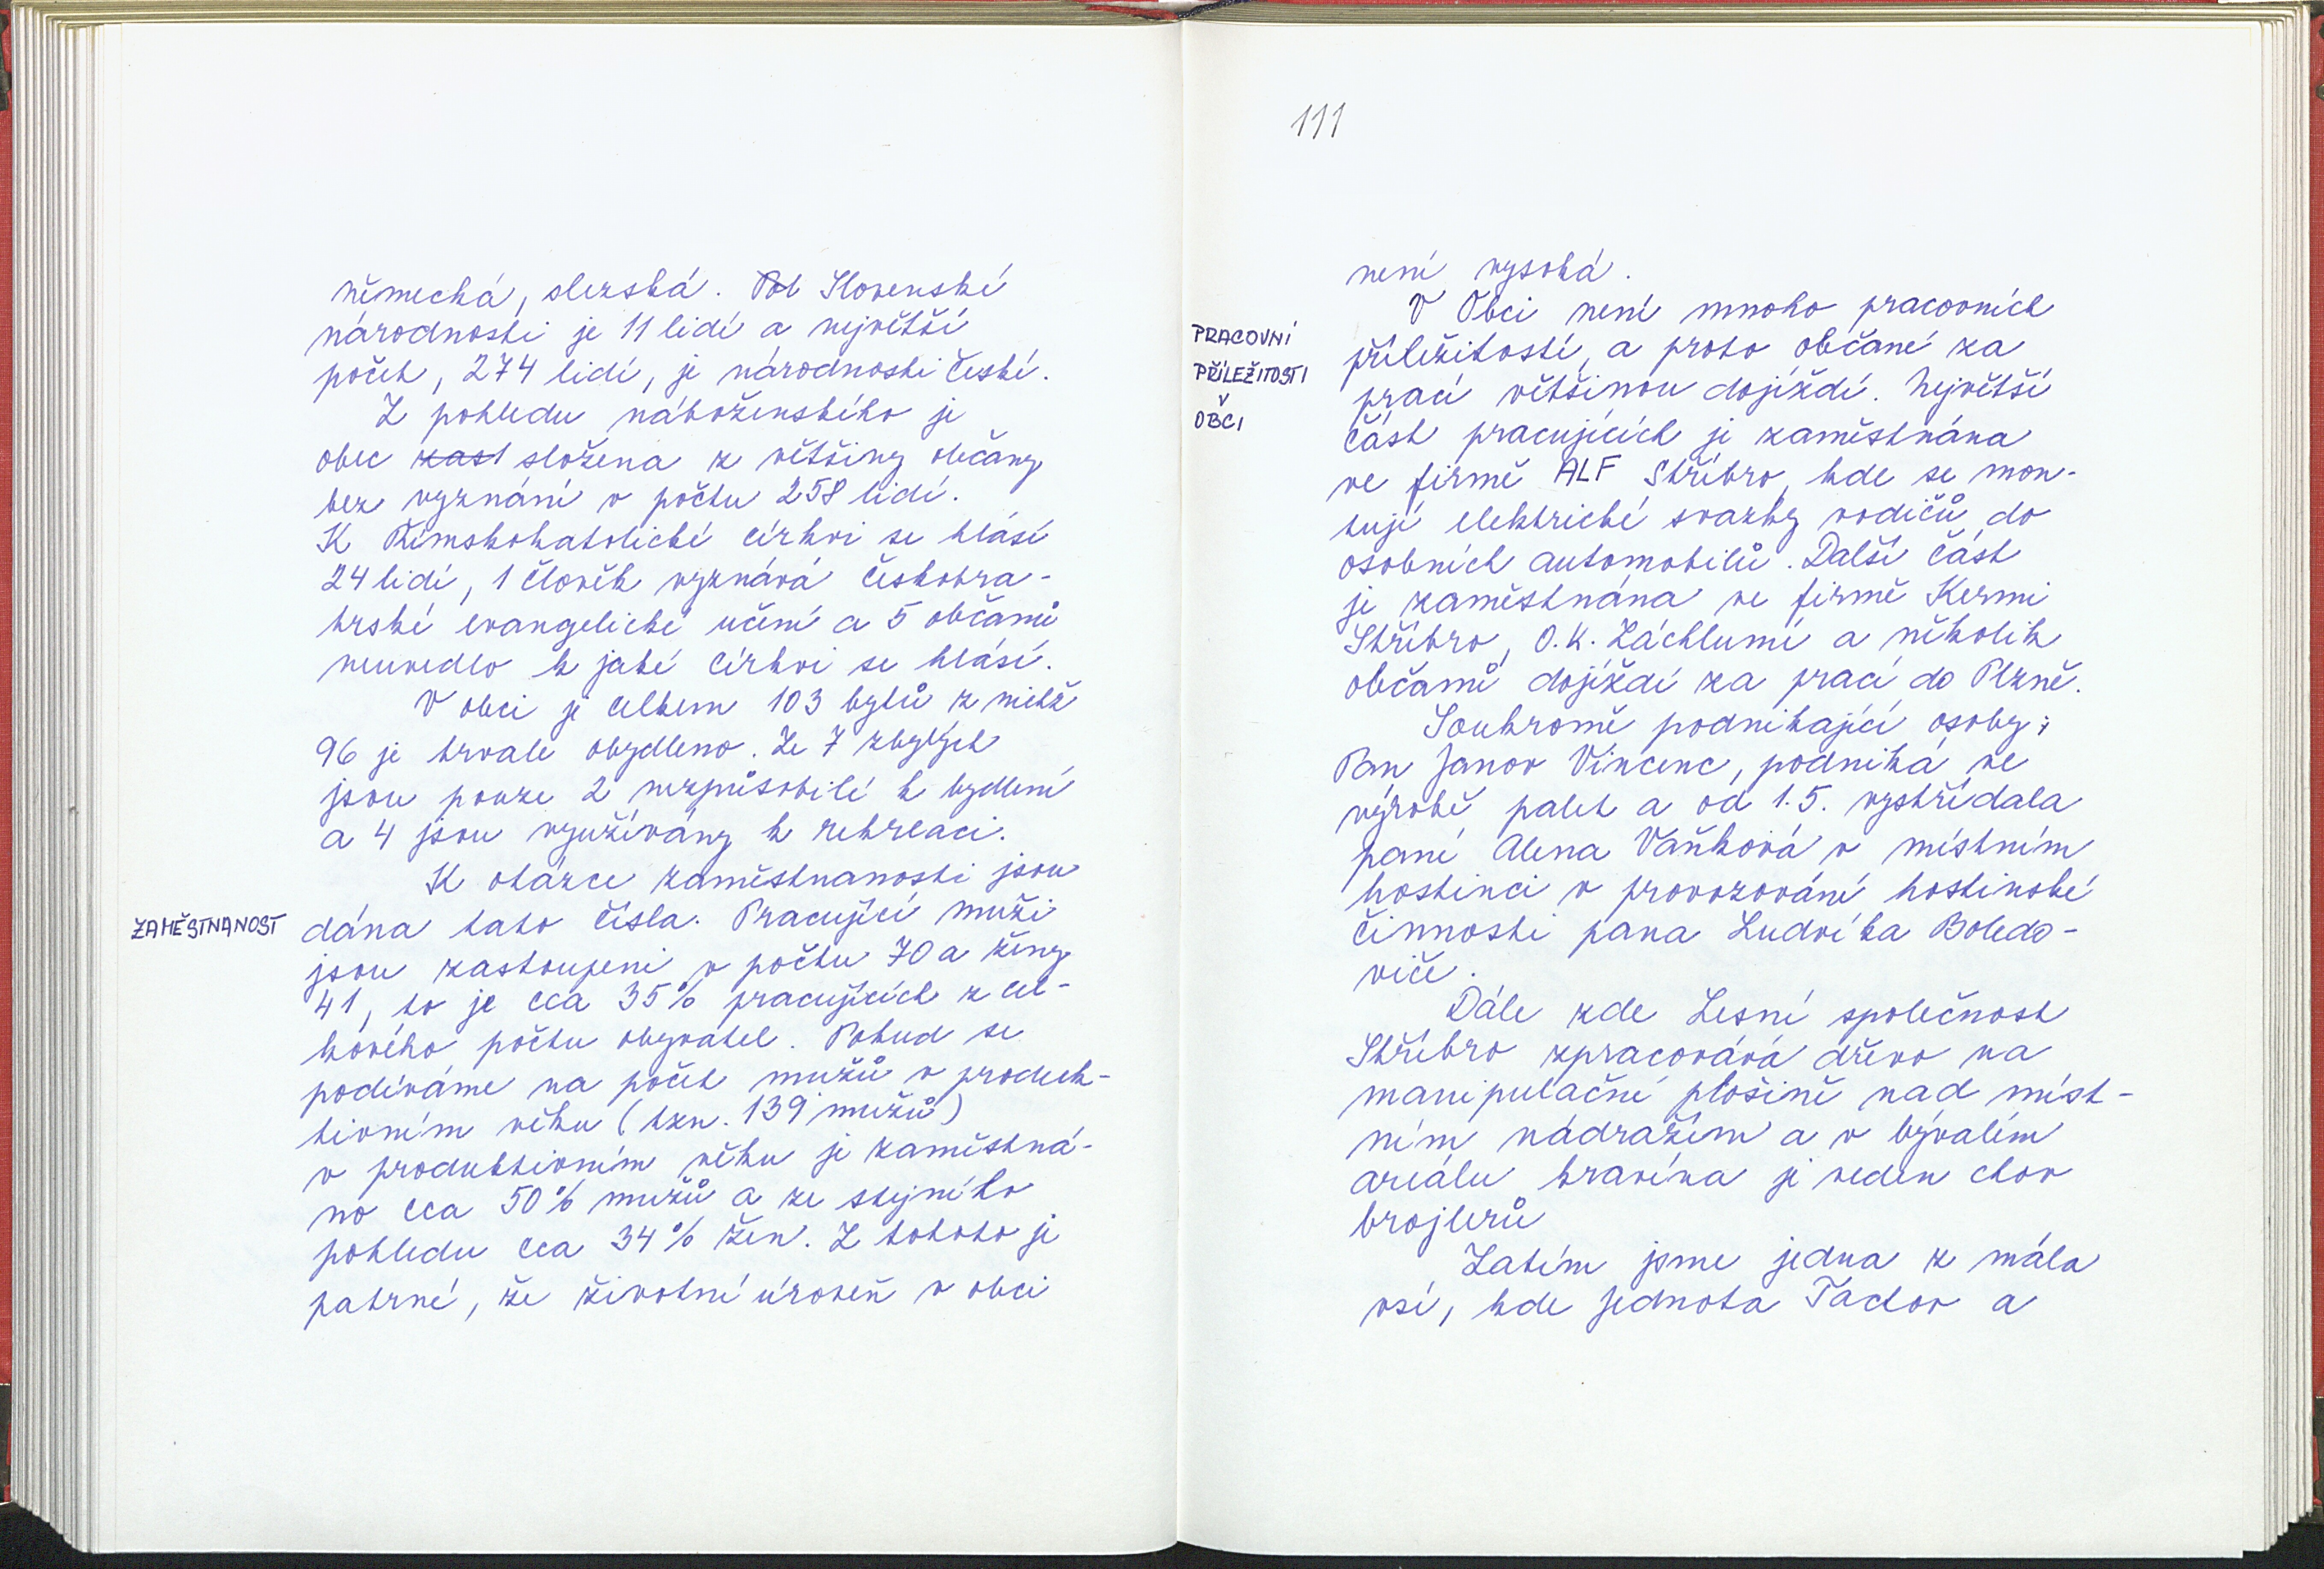 německá, slezská. Pol Slovenské
národnosti je 11 lidí a největší
počet, 274 lidí, je národnosti české.
Z pohledu náboženského je
obec zast složena z většiny občany
bez vyznání v počtu 258 lidí.
K Římskokatolické církvi se hlásí
24 lidí, 1 člověk vyznává českobra-
trské evangelické učení a 5 občanů
neuvedlo k jaké církvi se hlásí.
V obci je celkem 103 bytů z nichž
96 je trvale obydleno. Ze 7 zbylých
jsou pouze 2 nezpůsobilé k bydlení
a 4 jsou využívány k rekreaci.
K otázce zaměstnanosti jsou
ZAMĚSTNANOST
dána tato čísla. Pracující muži
jsou zastoupeni v počtu 70 a ženy
41, to je cca 35% pracujících z cel-
kového počtu obyvatel. Pokud se
podíváme na počet mužů v produk-
tivním věku (tzn. 139 mužů)
v produktivním věku je zaměstná-
no cca 50% mužů a ze stejného
pohledu cca 34% žen. Z tohoto je
patrné, že životní úroveň v obci
111
není vysoká.
V Obci není mnoho pracovních
PRACOVNÍ
PŘÍLEŽITOSTI
V
OBCI
příležitostí, a proto občané za
prací většinou dojíždí. Největší
část pracujících je zaměstnána
ve firmě ALF Stříbro, kde se mon-
tují elektrické svazky vodičů do
osobních automobilů. Další část
je zaměstnána ve firmě Kermi
Stříbro, O.K. Záchlumí a několik
občanů dojíždí za prací do Plzně.
Soukromě podnikající osoby:
Pan Janov Vincenc, podniká ve
výrobě palet a od 1.5. vystřídala
paní Alena Vaňková v místním
hostinci v provozování hostinské
činnosti pana Ludvíka Boledo-
viče.
Dále zde Lesní společnost
Stříbro zpracovává dřevo na
manipulační plošině nad míst-
ním nádražím a v bývalém
areálu kravína je veden chov
brojlerů
Zatím jsme jedna z mála
vsí, kde Jednota Tachov a